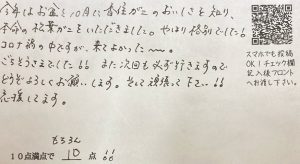 今年はお盆と10月に香住ガニのおいしさを知り、
本命の松葉ガニをいただきました。やはり格別でした!!
コロナ禍の中ですが、来てよかった〜。
ごちそうさまでした!! また次回も必ず行きますので
どうぞよろしくお願いします。そして頑張って下さい!!
応援してます。
スマホでも投稿
OK!チェック欄
記入後フロント
へお渡し下さい。
もちろん
10点満点で 10 点 !!